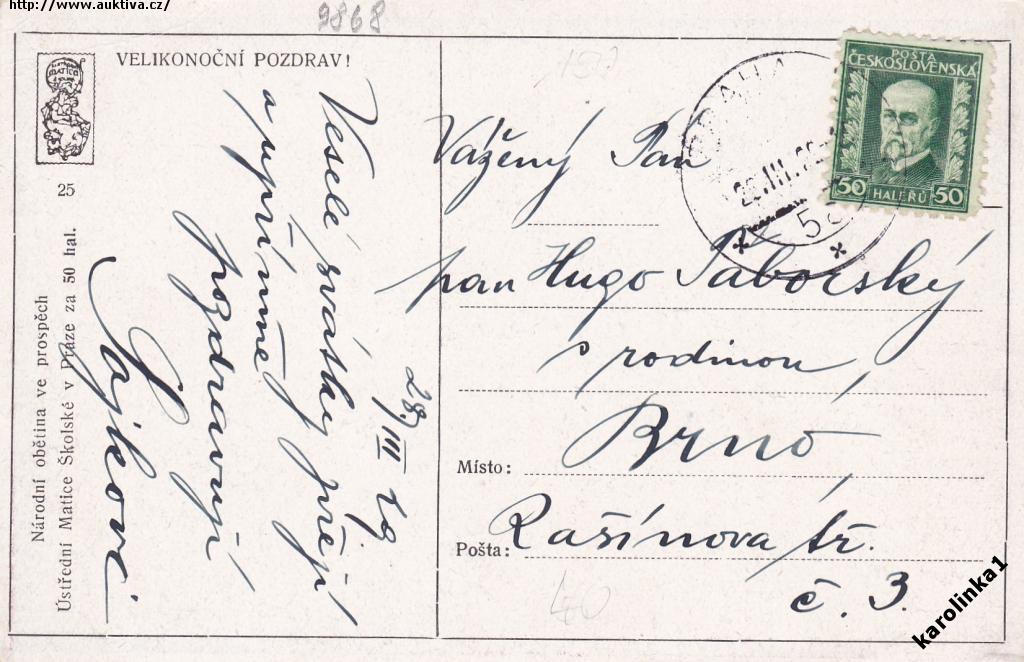 http://www.auktiva.cz/
9868
VELIKONOČNÍ POZDRAV!
matice
25
Národní obětina ve prospěch
Ústřední Matice Školské v Praze za 50 hal.
Veselé svátky přejí
a upřímně
pozdravují
28/III 29
157
Vážený Pán
pan Hugo Táborský
s rodinou,
Místo: Brno
Pošta: Rašínova tř.
č. 3.
40
PRAHA
28.III.29
POSTA
ČESKOSLOVENSKÁ
50 HALÉŘŮ 50
karolinka1